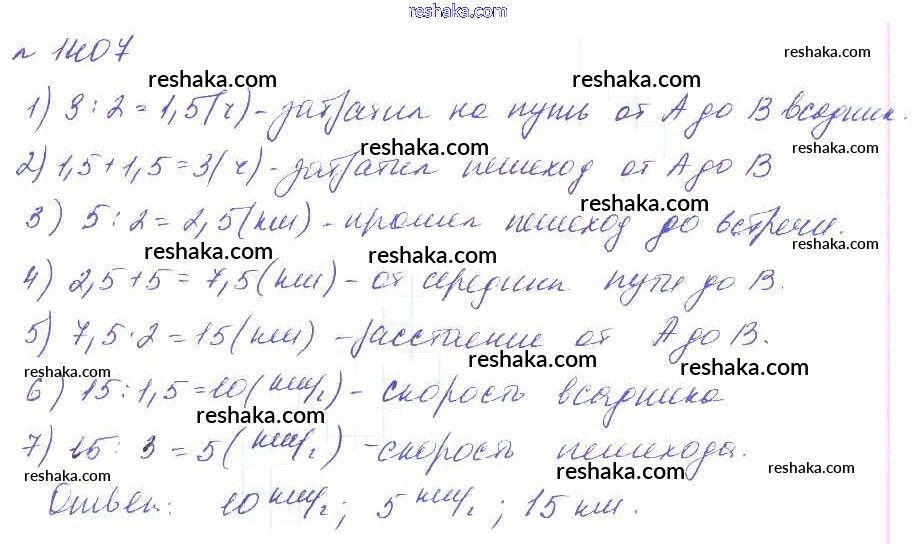 reshaka.com
№ 1407
reshaka.com
reshaka.com
reshaka.com
1) 3 : 2 = 1,5 (ч) - затратил на путь от А до В всадник.
reshaka.com
reshaka.com
2) 1,5 + 1,5 = 3 (ч) - затратил пешеход от А до В
reshaka.com
3) 5 : 2 = 2,5 (км) - прошел пешеход до встречи.
reshaka.com
reshaka.com
reshaka.com
4) 2,5 + 5 = 7,5 (км) - от середины пути до В.
5) 7,5 · 2 = 15 (км) - расстояние от А до В.
reshaka.com
reshaka.com
reshaka.com
6) 15 : 1,5 = 10 (км/ч) - скорость всадника
reshaka.com
7) 15 : 3 = 5 (км/ч) - скорость пешехода.
reshaka.com
reshaka.com
Ответ: 10 км/ч; 5 км/ч; 15 км.
reshaka.com